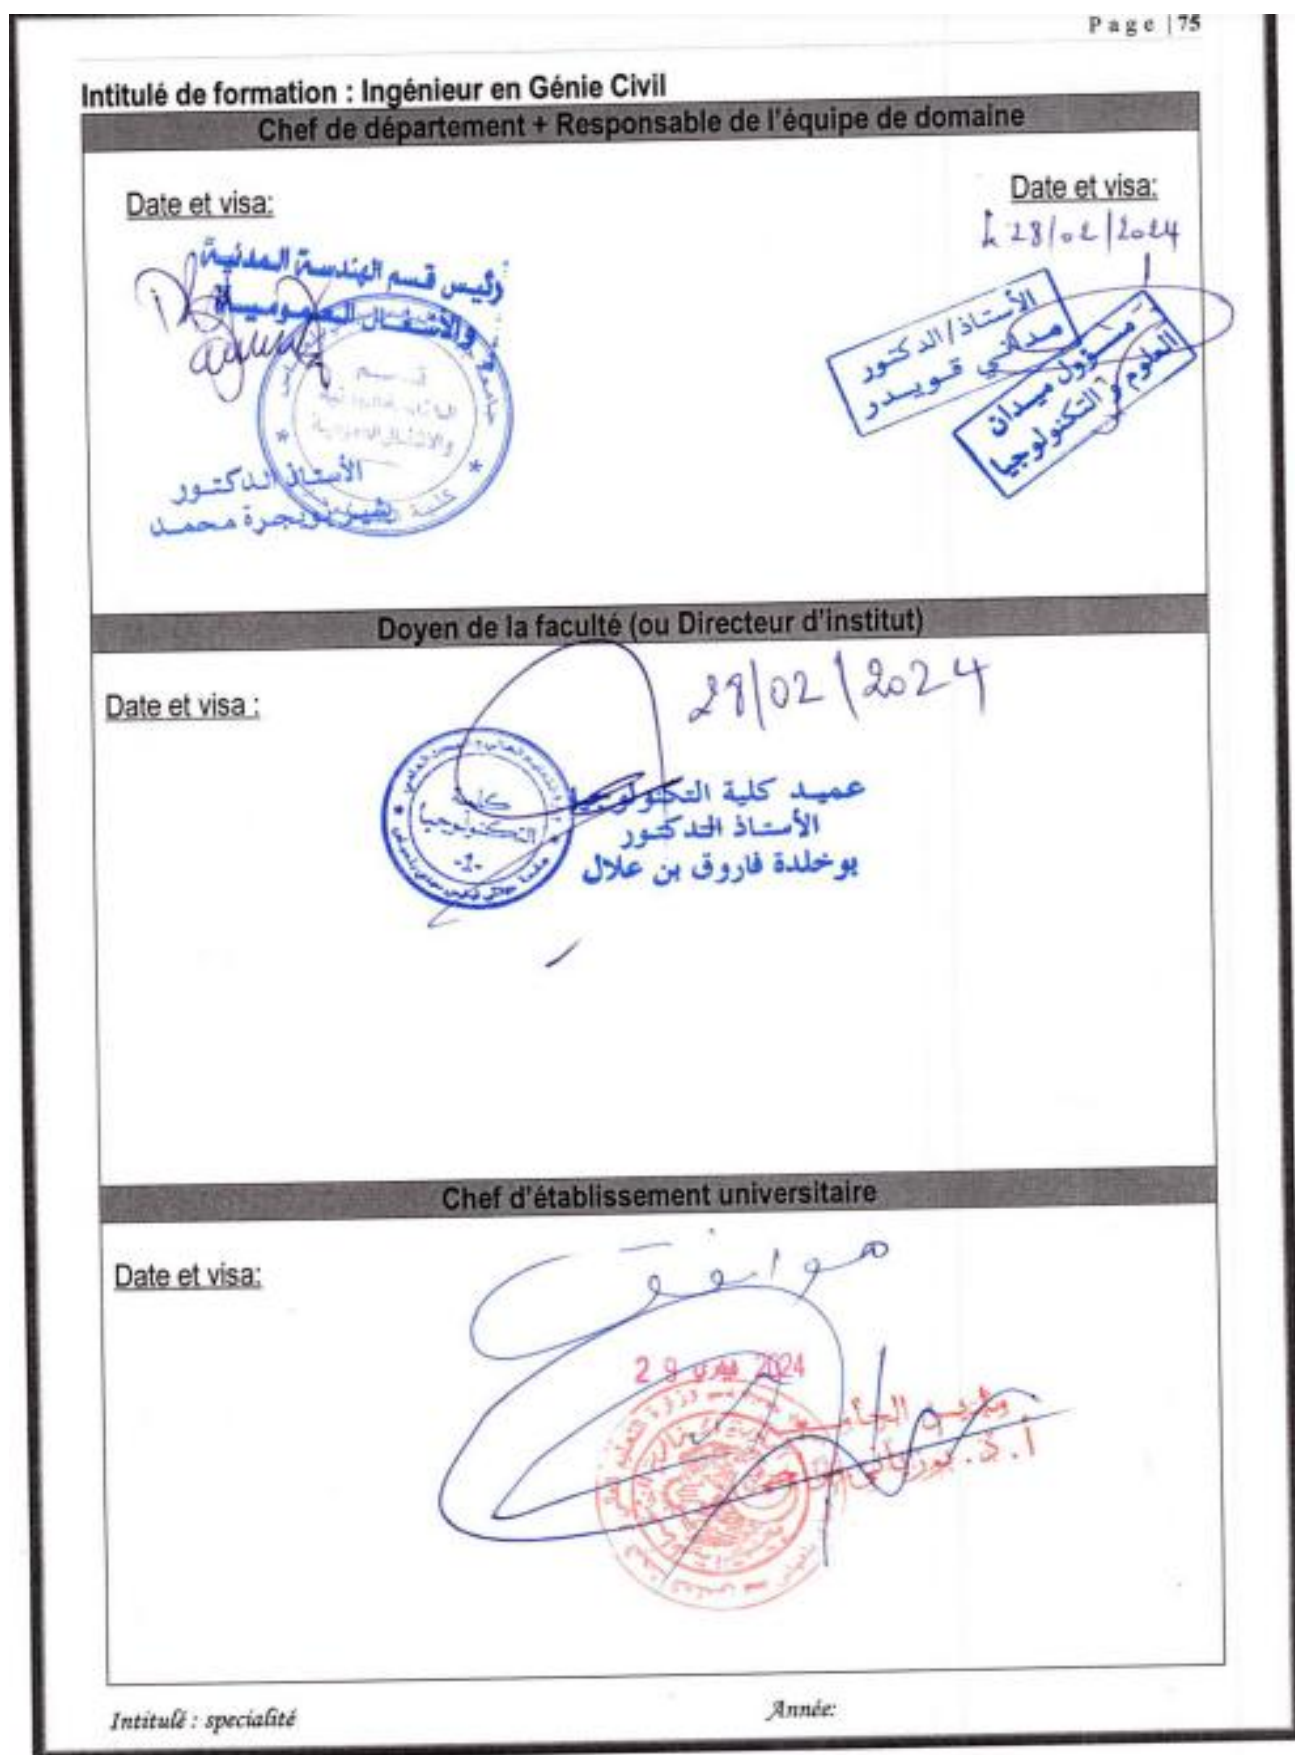 Page |75
Intitulé de formation : Ingénieur en Génie Civil
Chef de département + Responsable de l'équipe de domaine
Date et visa:
رئيس قسم الهندسة المدنية
و الأشغال العمومية
قسم
والأشغال العمومية
الأستاذ الدكتور
محمد
Date et visa:
28/02/2024
الأستاذ/الدكتور
مداني قويدر
مسؤول ميدان
العلوم و التكنولوجيا
Doyen de la faculté (ou Directeur d'institut)
Date et visa :
28/02/2024
كلية
التكنولوجيا
-1-
عميد كلية التكنولوجيا
الأستاذ الدكتور
بوخلدة فاروق بن علال
Chef d'établissement universitaire
Date et visa:
موافقة
2024 فيفري 29
Intitulé : specialité
Année: